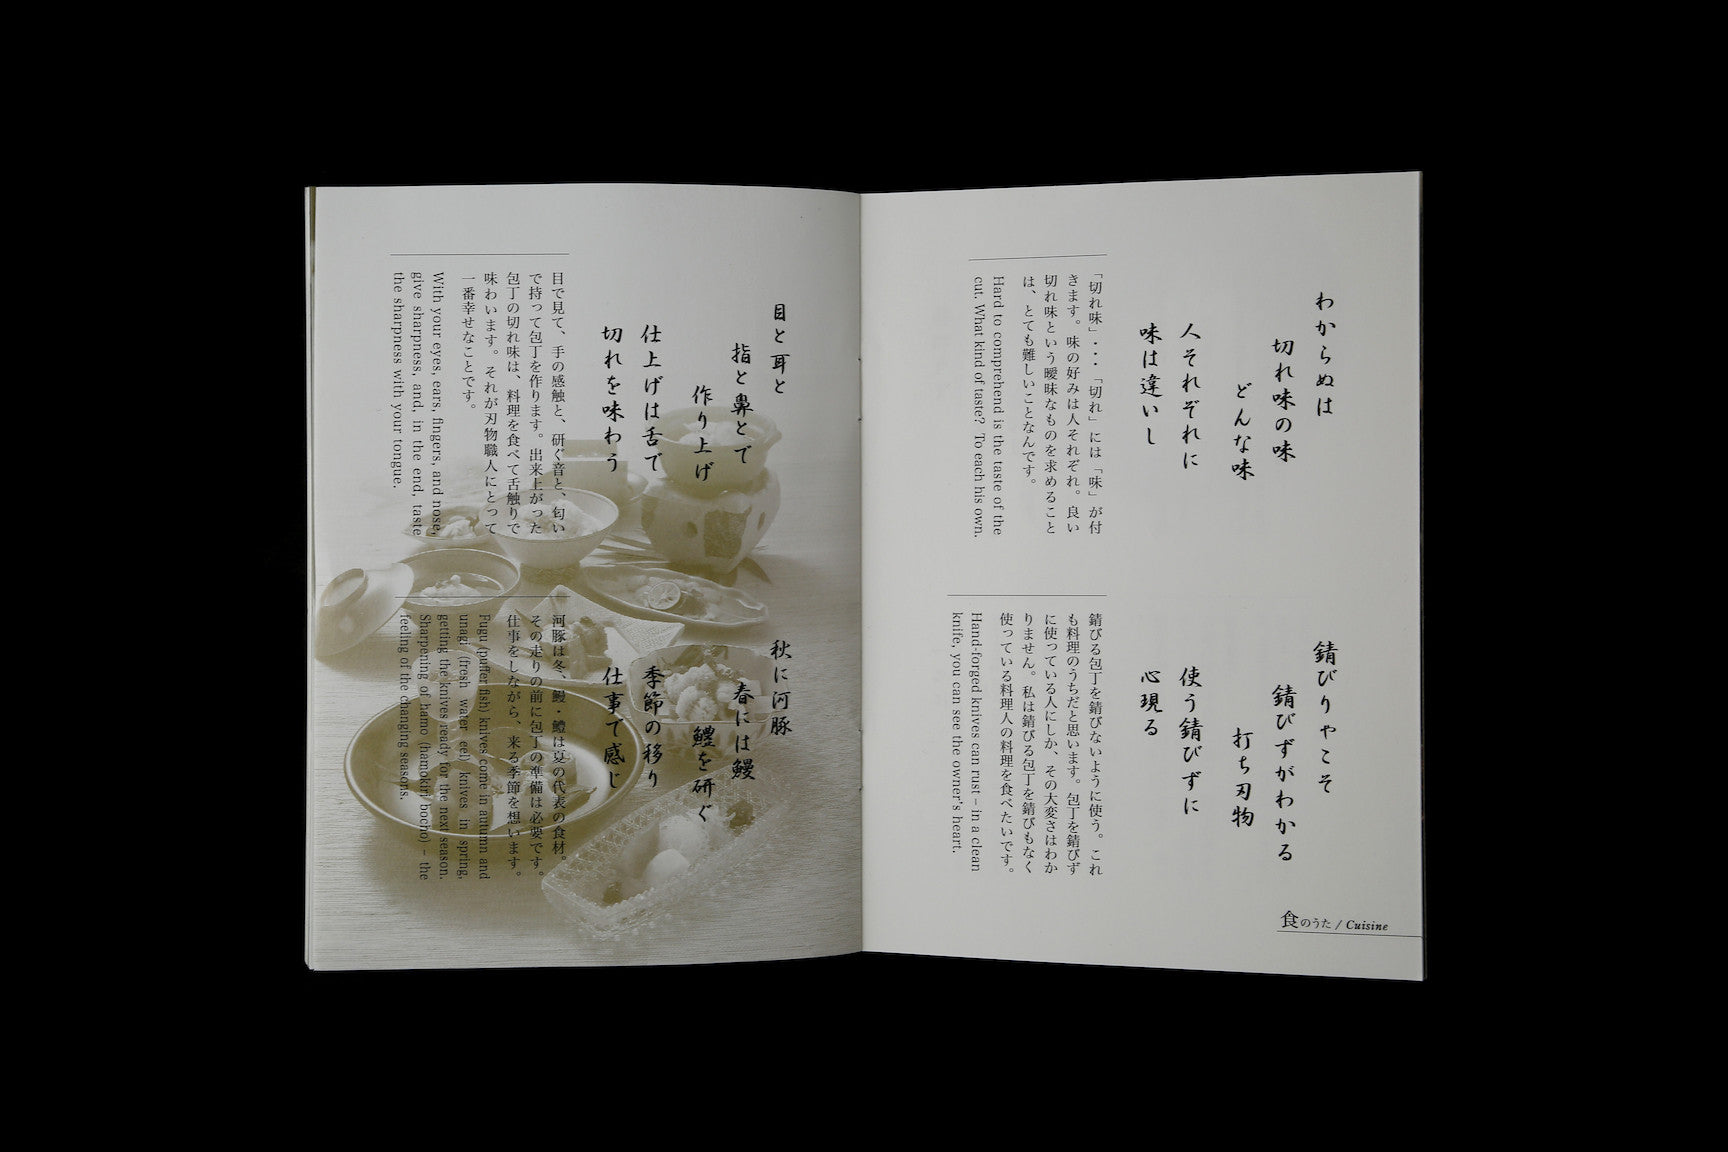 わからぬは
切れ味の味
どんな味
人それぞれに
味は違いし
「切れ味」・・・「切れ」には「味」が付
きます。味の好みは人それぞれ。良い
切れ味という曖昧なものを求めること
は、とても難しいことなんです。
Hard to comprehend is the taste of the
cut. What kind of taste? To each his own.
錆びりゃこそ
錆びずがわかる
打ち刃物
使う錆びずに
心現る
錆びる包丁を錆びないように使う。これ
も料理のうちだと思います。包丁を錆びず
に使っている人にしか、その大変さはわか
りません。私は錆びる包丁を錆びもなく
使っている料理人の料理を食べたいです。
Hand-forged knives can rust – in a clean
knife, you can see the owner's heart.
食のうた / Cuisine
目と耳と
指と鼻とで
作り上げ
仕上げは舌で
切れを味わう
目で見て、手の感触と、研ぐ音と、匂い
で持って包丁を作ります。出来上がった
包丁の切れ味は、料理を食べて舌触りで
味わいます。それが刃物職人にとって
一番幸せなことです。
With your eyes, ears, fingers, and nose,
give sharpness, and, in the end, taste
the sharpness with your tongue.
秋に河豚
春には鰻
鱧を研ぐ
季節の移り
仕事で感じ
河豚は冬、鰻・鱧は夏の代表の食材。
その走りの前に包丁の準備は必要です。
仕事をしながら、来る季節を想います。
Fugu (puffer fish) knives come in autumn and
unagi (fresh water eel) knives in spring,
getting the knives ready for the next season.
Sharpening of hamo (hamokiri bocho) – the
feeling of the changing seasons.